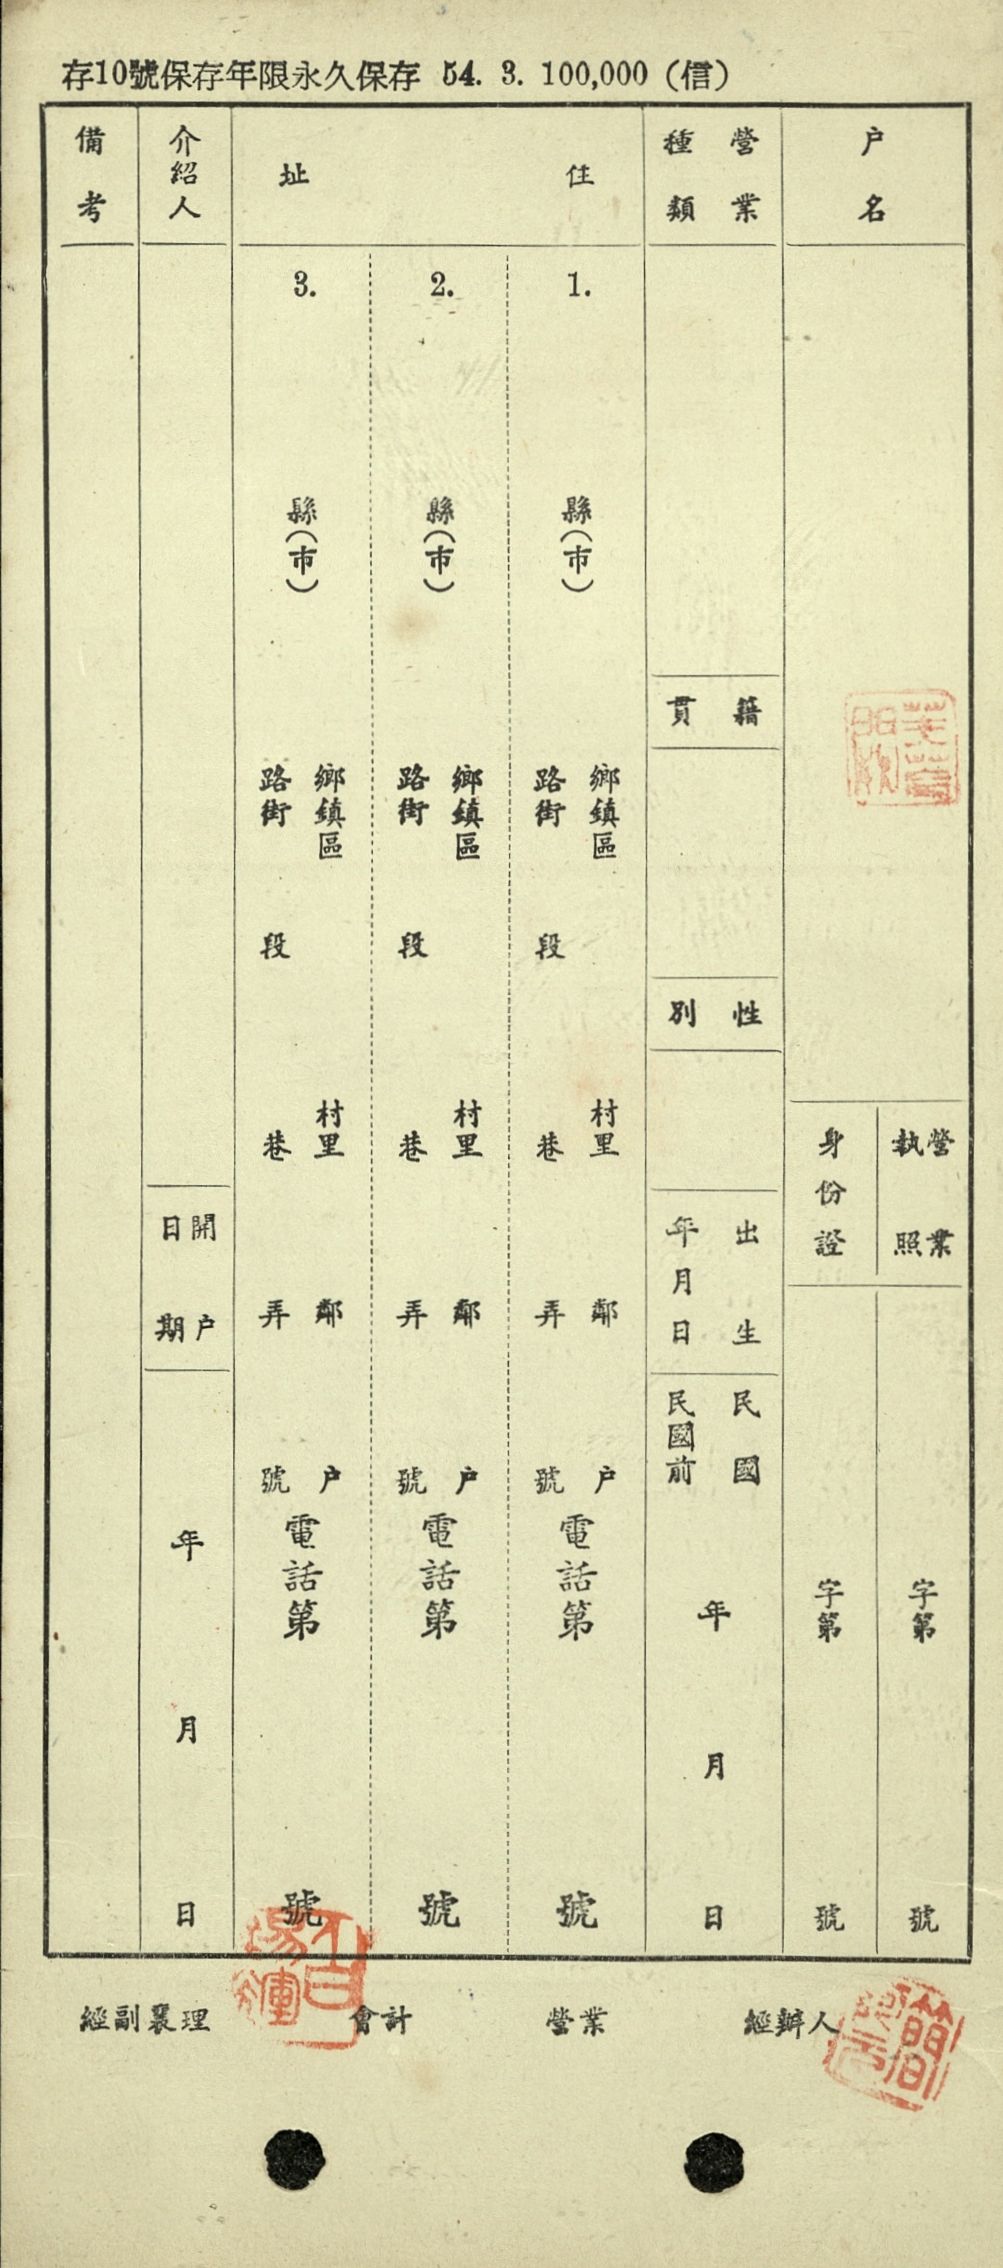 存10號保存年限永久保存 54. 3. 100,000（信）
户名
營業執照
字第 號
身份證
字第 號
營業種類
籍貫
性別
出生年月日
民國
民國前
年 月 日
住址
1.
縣（市）
鄉鎮區 村里 鄰 户
路街 段 巷 弄 號
電話第 號
2.
縣（市）
鄉鎮區 村里 鄰 户
路街 段 巷 弄 號
電話第 號
3.
縣（市）
鄉鎮區 村里 鄰 户
路街 段 巷 弄 號
電話第 號
介紹人
開户日期
年 月 日
備考
經副襄理 會計 營業 經辦人